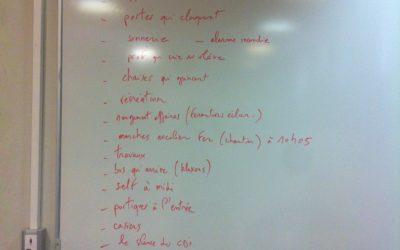 - portes qui claquent
- sonnerie - alarme incendie
- prof qui crie
- chaises qui grincent
- récréation
- affaires (fermeture éclair..)
- marches escalier fer (chantier) à 10h05
- travaux
- bus qui arrive (klaxons)
- self à midi
- portique à l'entrée
- casiers
- le silence du CDI